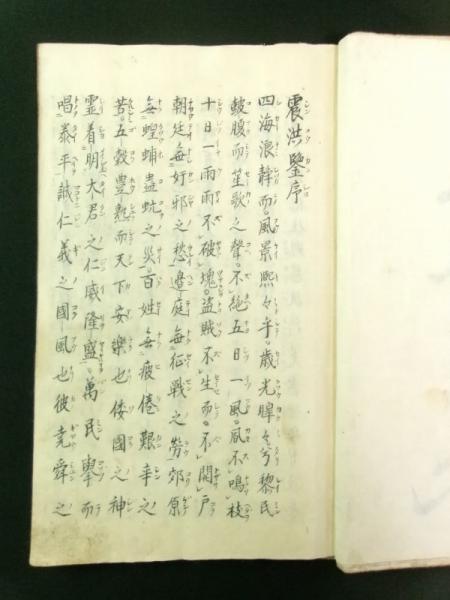 震洪鑒序
四海浪静而風景熈々乎歳光暭々兮黎民
皷腹而笙歌之聲不絶五日一風風不鳴枝
十日一雨雨不破塊盗賊不生而不閇戸
朝廷無奸邪之愁邉庭無征戦之勞郊原
無蝗蝻蟲蚄之災百姓無疲倦艱辛之
苦五穀豊熟而天下安樂也倭國之神
霊着明大君之仁威隆盛萬民擧而
唱泰平誠仁義之國風也彼尭舜之